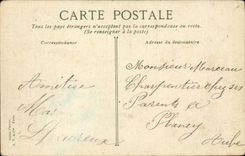 CARTE POSTALE
Tous les pays étrangers n'acceptent pas la correspondance au recto.
(Se renseigner à la poste)
Correspondance
Adresse du destinataire
Monsieur Marceau
Charpentier chez ses
Parents à
Plancy
Aube
Amitiés